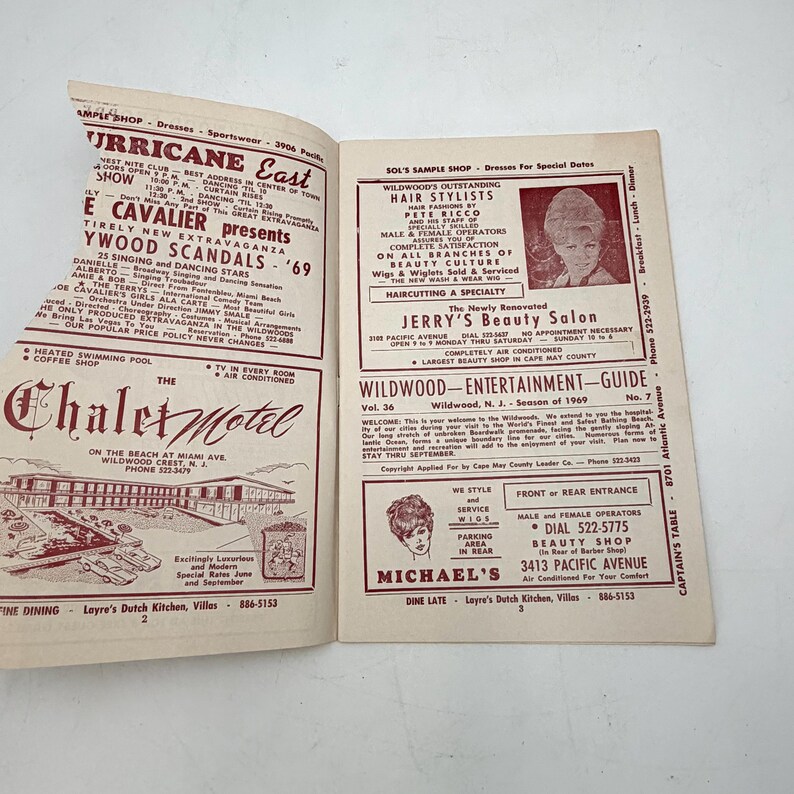 SAMPLE SHOP - Dresses - Sportswear - 3906 Pacific
HURRICANE East
NEST NITE CLUB — BEST ADDRESS IN CENTER OF TOWN
DOORS OPEN 9 P.M. - DANCING 'TIL 10
SHOW 10:00 P.M. - CURTAIN RISES
11:30 P.M. - DANCING 'TIL 12:30
12:30 - 2nd SHOW - Curtain Rising Promptly
RLY — Don't Miss Any Part of This GREAT EXTRAVAGANZA
E CAVALIER presents
TIRELY NEW EXTRAVAGANZA
YWOOD SCANDALS - '69
25 SINGING and DANCING STARS
DANIELLE - Broadway Singing and Dancing Sensation
ALBERTO - Singing Troubadour
AMIE & BOB - Direct From Fontenbleu, Miami Beach
★ THE TERRYS - International Comedy Team
OE CAVALIER'S GIRLS ALA CARTE - Most Beautiful Girls
Orchestra Under Direction JIMMY SMALE -
duced - Directed - Choreography - Costumes - Musical Arrangements
HE ONLY PRODUCED EXTRAVAGANZA IN THE WILDWOODS
We Bring Las Vegas To You — Reservation - Phone 522-6888
— OUR POPULAR PRICE POLICY NEVER CHANGES —
• HEATED SWIMMING POOL
• COFFEE SHOP
• TV IN EVERY ROOM
• AIR CONDITIONED
THE
Chalet Motel
ON THE BEACH AT MIAMI AVE.
WILDWOOD CREST, N. J.
PHONE 522-3479
Excitingly Luxurious
and Modern
Special Rates June
and September
FINE DINING - Layre's Dutch Kitchen, Villas - 886-5153
2
SOL'S SAMPLE SHOP - Dresses For Special Dates
WILDWOOD'S OUTSTANDING
HAIR STYLISTS
HAIR FASHIONS BY
PETE RICCO
AND HIS STAFF OF
SPECIALLY SKILLED
MALE & FEMALE OPERATORS
ASSURES YOU OF
COMPLETE SATISFACTION
ON ALL BRANCHES OF
BEAUTY CULTURE
Wigs & Wiglets Sold & Serviced
— THE NEW WASH & WEAR WIG —
HAIRCUTTING A SPECIALTY
The Newly Renovated
JERRY'S Beauty Salon
3102 PACIFIC AVENUE DIAL 522-5637 NO APPOINTMENT NECESSARY
OPEN 9 to 9 MONDAY THRU SATURDAY — SUNDAY 10 to 6
COMPLETELY AIR CONDITIONED
• LARGEST BEAUTY SHOP IN CAPE MAY COUNTY
WILDWOOD—ENTERTAINMENT—GUIDE
Vol. 36 Wildwood, N. J. - Season of 1969 No. 7
WELCOME: This is your welcome to the Wildwoods. We extend to you the hospital-
ity of our cities during your visit to the World's Finest and Safest Bathing Beach.
Our long stretch of unbroken Boardwalk promenade, facing the gently sloping At-
lantic Ocean, forms a unique boundary line for our cities. Numerous forms of
entertainment and recreation will add to the enjoyment of your visit. Plan now to
STAY THRU SEPTEMBER.
Copyright Applied For by Cape May County Leader Co. — Phone 522-3423
WE STYLE
and
SERVICE
WIGS
PARKING
AREA
IN REAR
MICHAEL'S
FRONT or REAR ENTRANCE
MALE and FEMALE OPERATORS
• DIAL 522-5775
BEAUTY SHOP
(In Rear of Barber Shop)
3413 PACIFIC AVENUE
Air Conditioned For Your Comfort
DINE LATE - Layre's Dutch Kitchen, Villas - 886-5153
3
CAPTAIN'S TABLE - 8701 Atlantic Avenue - Phone 522-2939 - Breakfast - Lunch - Dinner